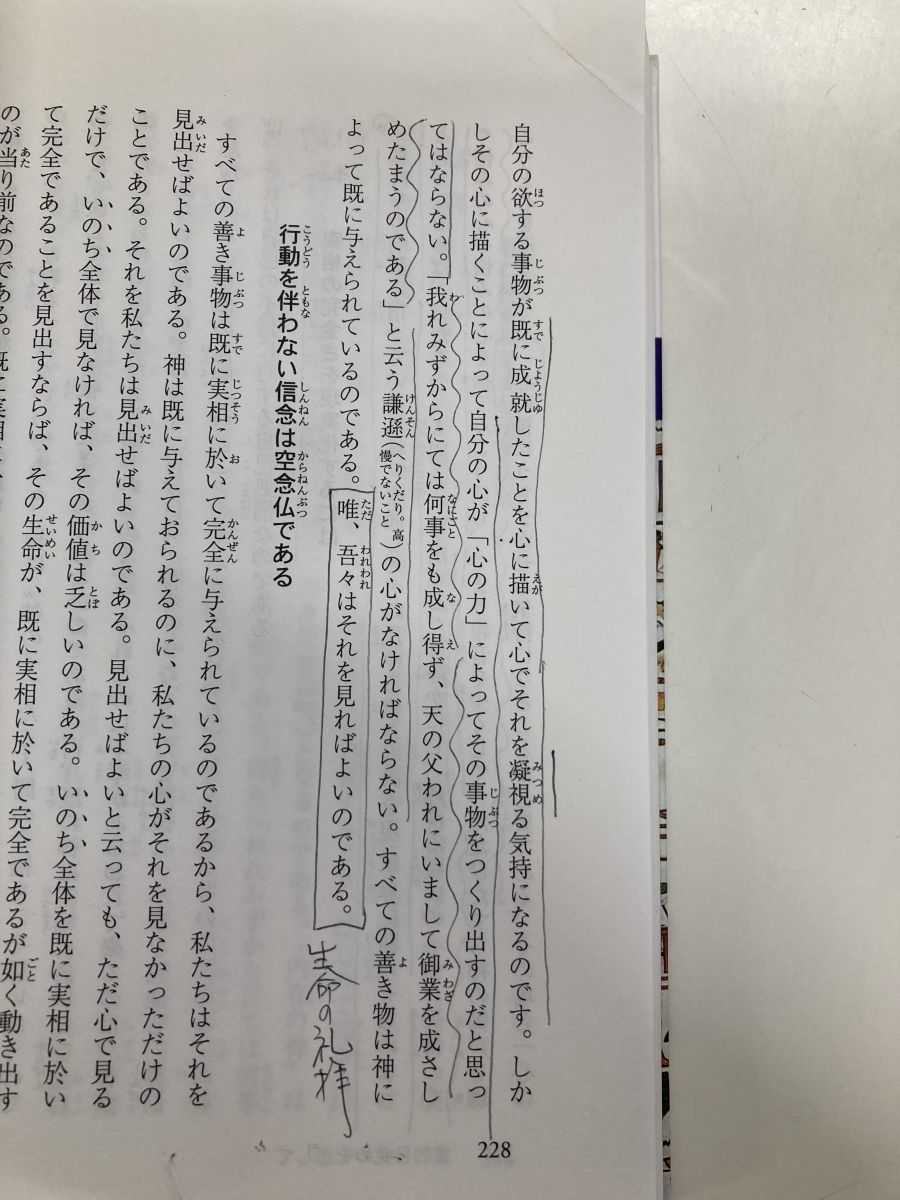 自分の欲する事物が既に成就したことを心に描いて心でそれを凝視る気持になるのです。しか
しその心に描くことによって自分の心が「心の力」によってその事物をつくり出すのだと思っ
てはならない。「我れみずからにては何事をも成し得ず、天の父われにいまして御業を成さし
めたまうのである」と云う謙遜(へりくだり。高慢でないこと)の心がなければならない。すべての善き物は神に
よって既に与えられているのである。唯、吾々はそれを見ればよいのである。
生命の礼拝
行動を伴わない信念は空念仏である
すべての善き事物は既に実相に於いて完全に与えられているのであるから、私たちはそれを
見出せばよいのである。神は既に与えておられるのに、私たちの心がそれを見なかっただけの
ことである。それを私たちは見出せばよいのである。見出せばよいと云っても、ただ心で見る
だけで、いのち全体で見なければ、その価値は乏しいのである。いのち全体を既に実相に於い
て完全であることを見出すならば、その生命が、既に実相に於いて完全であるが如く動き出す
のが当り前なのである。既に実相
228